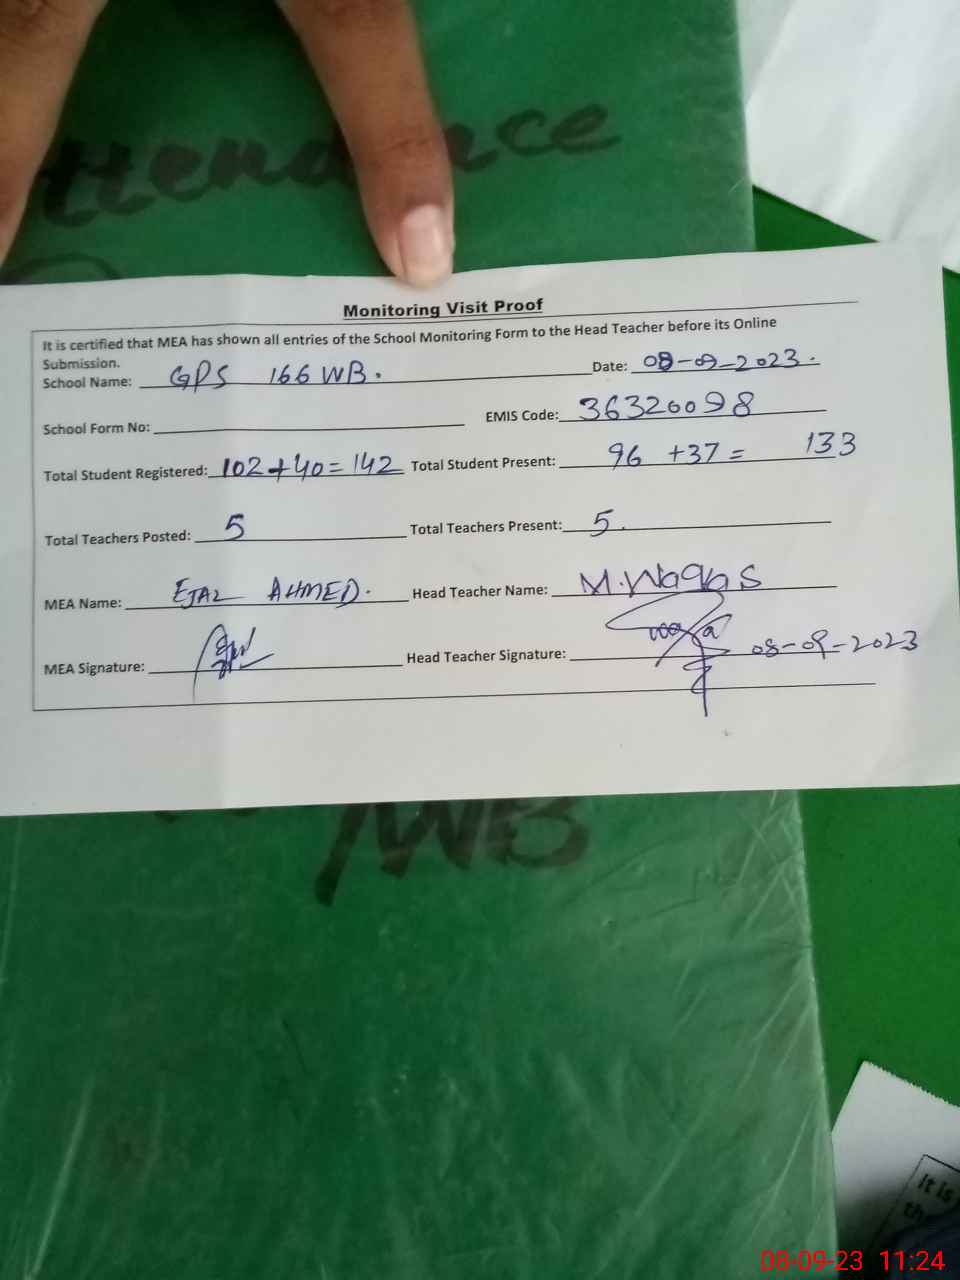 Attendance
Monitoring Visit Proof
It is certified that MEA has shown all entries of the School Monitoring Form to the Head Teacher before its Online
Submission.
School Name: GPS 166 WB. Date: 08-09-2023.
School Form No: EMIS Code: 36320098
Total Student Registered: 102+40=142 Total Student Present: 96 +37= 133
Total Teachers Posted: 5 Total Teachers Present: 5.
MEA Name: EJAZ AHMED. Head Teacher Name: M.Waqas
MEA Signature: Head Teacher Signature: 08-09-2023
/WB
It is
08-09-23 11:24